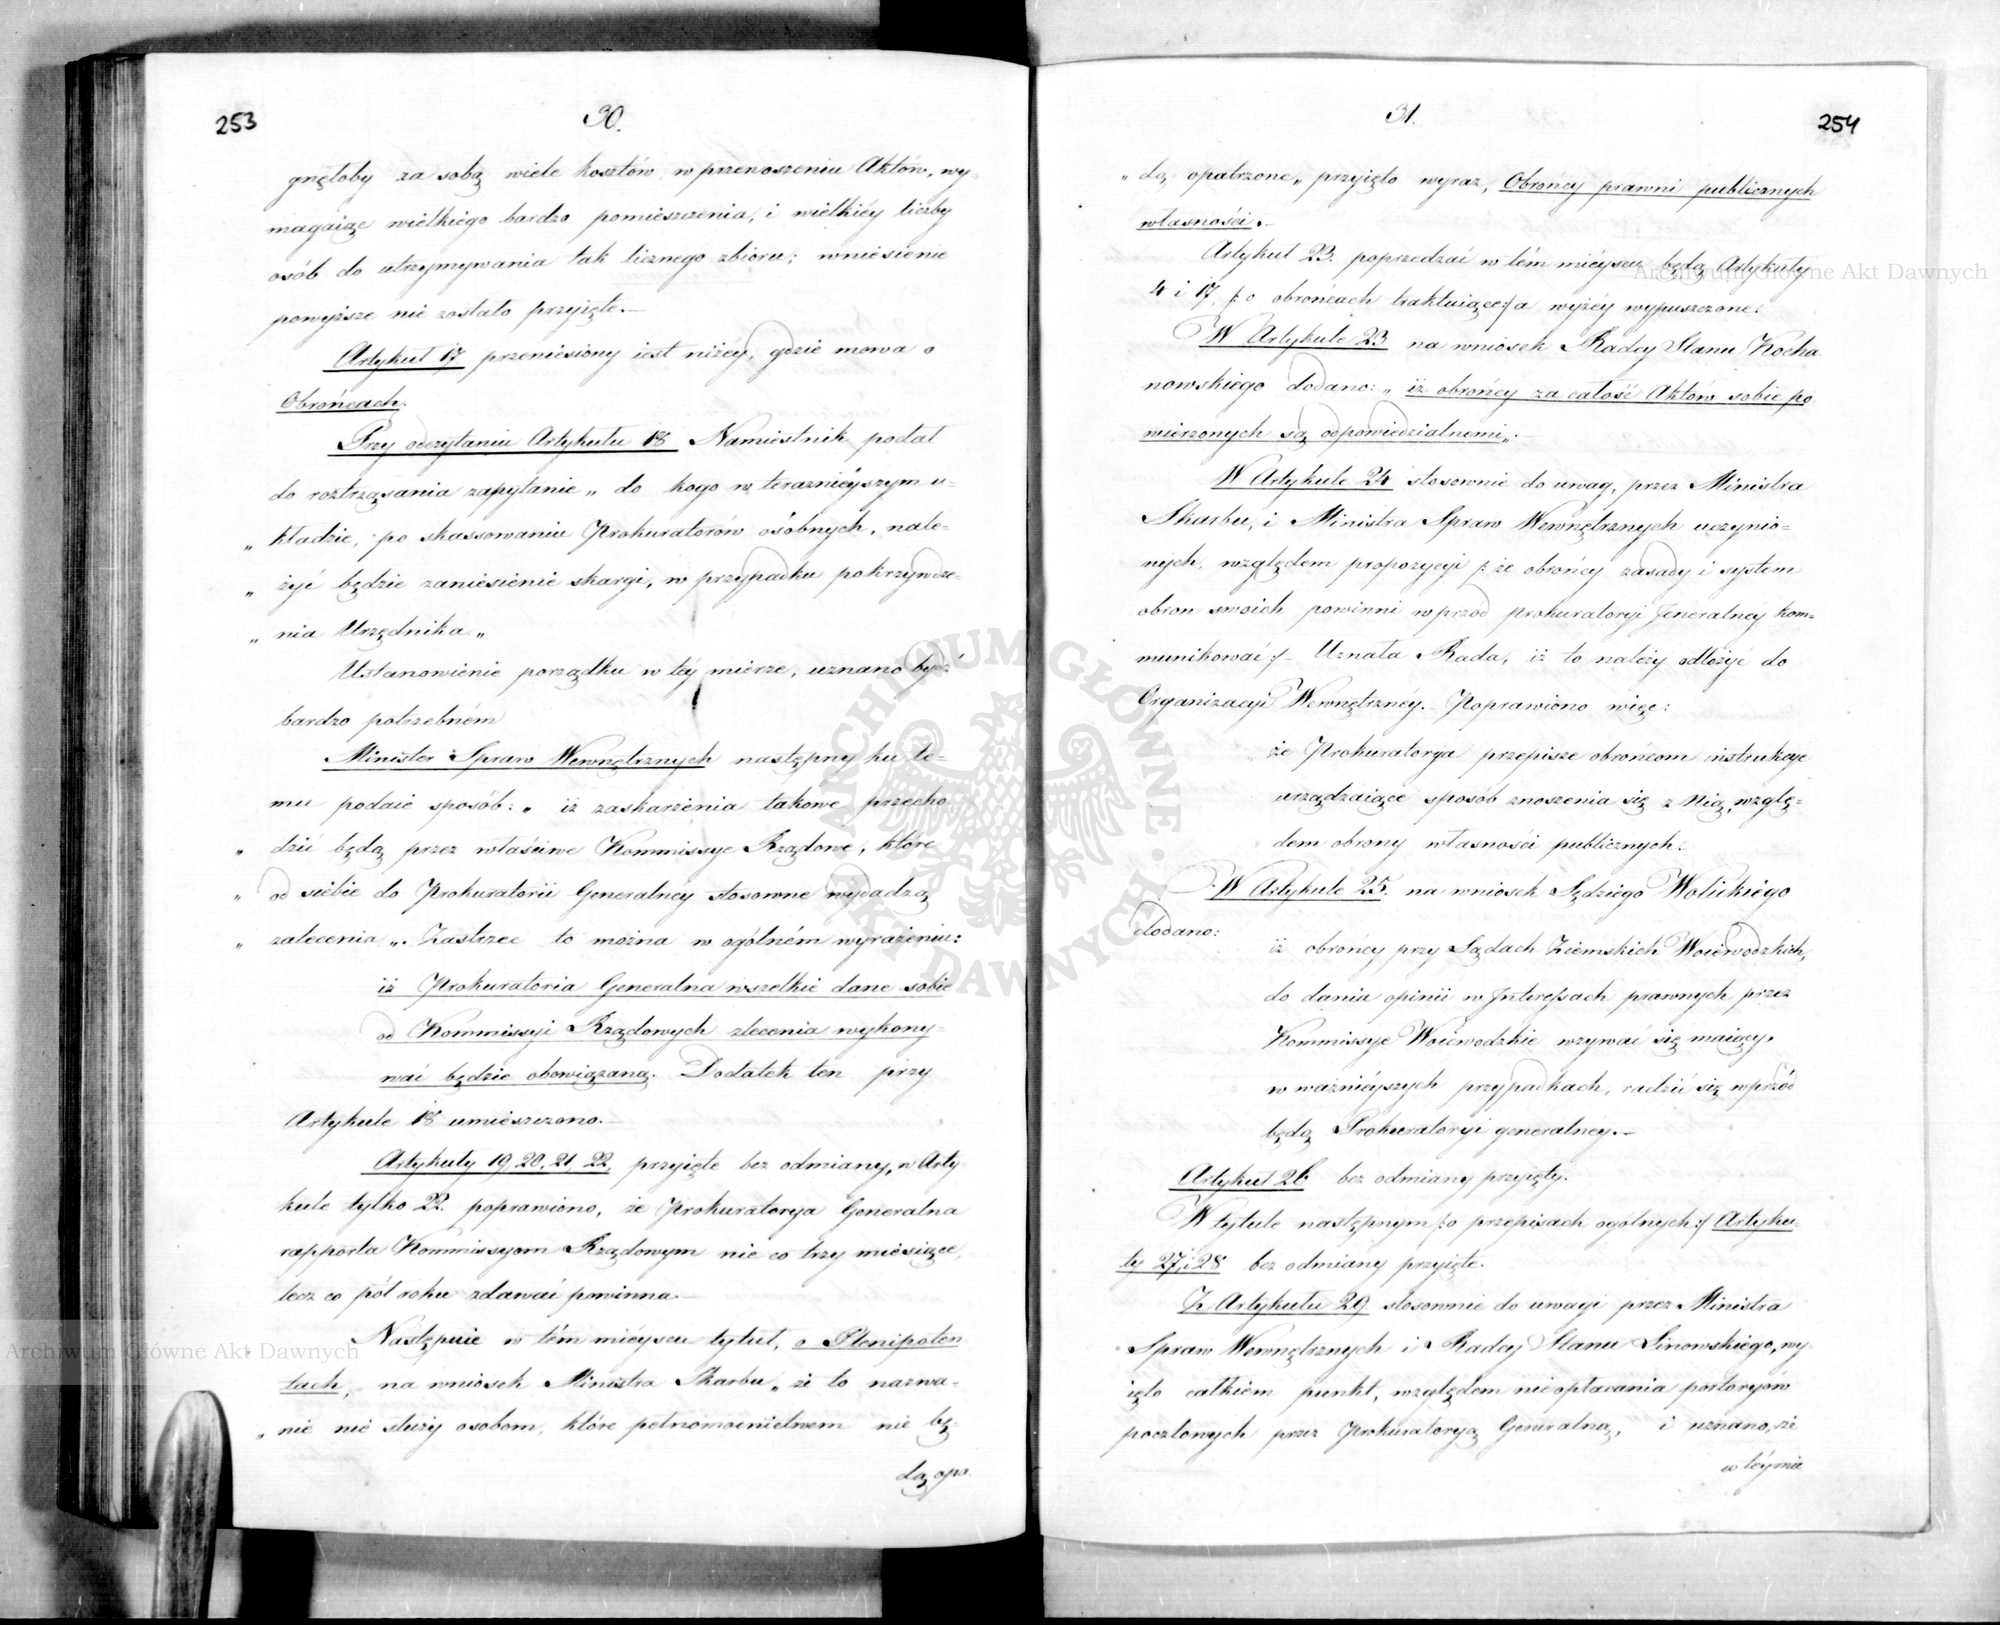 253
30.
gnęłoby za sobą wiele kosztów w przenoszeniu Aktów, wy-
magaiąc wielkiego bardzo pomieszczenia, i wielkiéy liczby
osób do utrzymywania tak licznego zbioru; wniesienie
powyższe nie zostało przyięte.—
Artykuł 17 przeniesiony iest niżéy, gdzie mowa o
Obrońcach.
Przy odczytaniu Artykułu 18 Namiestnik podał
do roztrząsania zapytanie „ do kogo w teraznieyszym u-
„ kładzie, po skassowaniu Prokuratorów osobnych, nale-
„ żyć będzie zaniesienie skargi, w przypadku pokrzywdze-
„ nia Urzędnika „
Ustanowienie porządku w téy mierze, uznano bydź
bardzo potrzebném
Minister Spraw Wewnętrznych następny ku te-
mu podaie sposób: „ iż zaskarżenia takowe przecho
„ dzić będą przez właściwe Kommissye Rządowe, które
„ od siebie do Prokuratorii Generalney stosowne wydadzą
„ zalecenia „. Zastrzec to można w ogólném wyrażeniu:
iż Prokuratoria Generalna wszelkie dane sobie
od Kommissyi Rządowych zlecenia wykony-
wać będzie obowiązaną. Dodatek ten przy
Artykule 18 umieszczono.—
Artykuły 19, 20, 21, 22, przyięte bez odmiany, w Arty
kule tylko 22. poprawiono, że Prokuratorya Generalna
rapporta Kommissyom Rządowym nie co trzy miesiące,
lecz co pół roku zdawać powinna.—
Następuie w tém mieyscu tytuł, o Plenipoten
tach, na wniosek Ministra Skarbu „ że to nazwa-
„ nie nie służy osobom, które pełnomocnictwem nie bę-
dą opa.
31.
254
„ dą opatrzone „ przyięto wyraz, Obrońcy prawni publicznych
własności.—
Artykuł 23. poprzedzać w tém mieyscu będą Artykuły
4 i 17 /: o obrońcach traktuiące:/ a wyżéy wypuszczone.
W Artykule 23 na wniosek Radcy Stanu Kocha
nowskiego dodano: „ iż obrońcy za całość Aktów sobie po
wierzonych są odpowiedzialnemi „.—
W Artykule 24 stosownie do uwag, przez Ministra
Skarbu, i Ministra Spraw Wewnętrznych uczynio-
nych, względem propozycyi /: że obrońcy zasady i system
obron swoich powinni wprzód prokuratoryi Jeneralnéy kom-
munikować :/ — Uznała Rada, iż to należy odłożyć do
Organizacyi Wewnętrznéy. — Poprawiono więc:
że Prokuratorya przepisze obrońcom instrukcye
urządzaiące sposób znoszenia się z Nią, wzglę-
dem obrony własności publicznych.
W Artykule 25. na wniosek Sędziego Wolickiego
dodano:
iż obrońcy przy Sądach Ziemskich Woiewodzkich,
do dania opinii w Interessach prawnych przez
Kommissye Woiewodzkie wzywać się maiący,
w ważnieyszych przypadkach, radzić się wprzód
będą Prokuratoryi generalney.—
Artykuł 26 bez odmiany przyięty.
W tytule następnym /: o przepisach ogólnych :/ Artyku-
ły 27, i 28 bez odmiany przyięte.
Z Artykułu 29 stosownie do uwagi przez Ministra
Spraw Wewnętrznych i Radcy Stanu Linowskiego, wy-
ięto całkiem punkt, względem nieopłacania portoryów
pocztowych przez Prokuratoryą Generalną, i uznano, że
w téy mie
Archiwum Główne Akt Dawnych
Archiwum Główne Akt Dawnych
ARCHIWUM GŁÓWNE AKT DAWNYCH